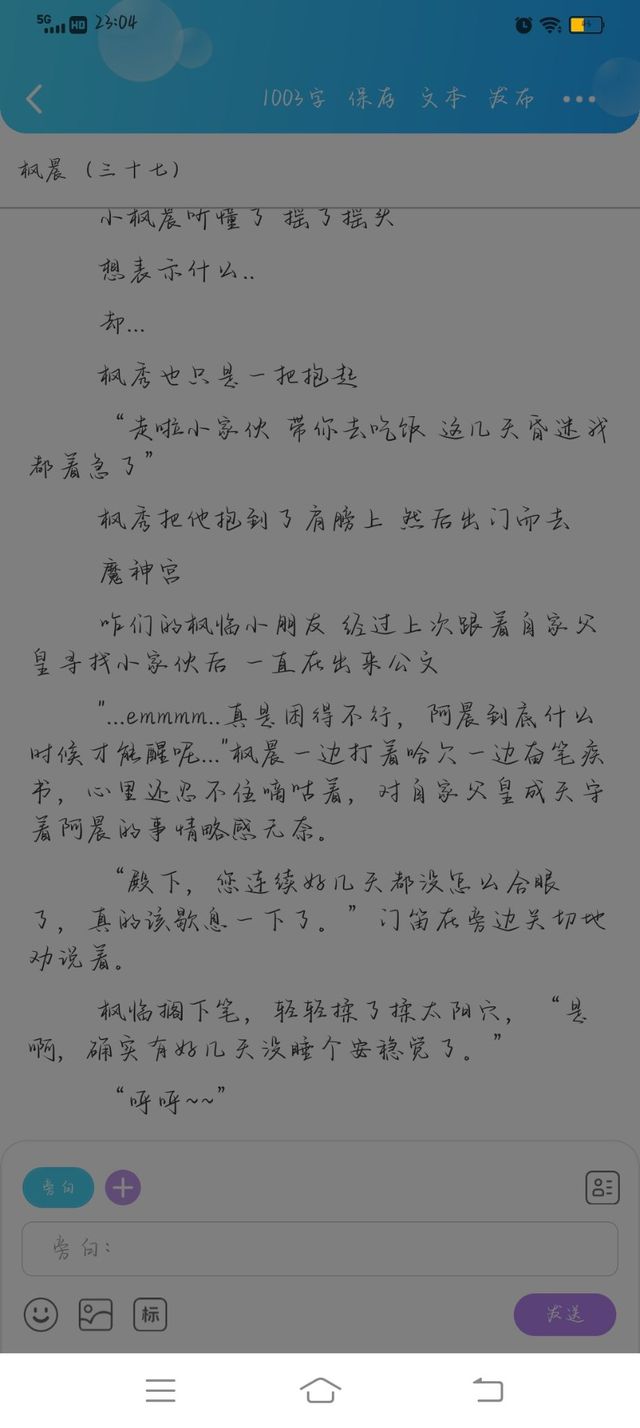 5G HD 23:04
46
1003字 保存 文本 发布
枫晨（三十七）
小枫晨听懂了 摇了摇头
想表示什么..
却...
枫秀也只是一把抱起
“走啦小家伙 带你去吃饭 这几天昏迷我
都着急了”
枫秀把他抱到了肩膀上 然后出门而去
魔神宫
咱们的枫临小朋友 经过上次跟着自家父
皇寻找小家伙后 一直在出来公文
"...emmmm..真是困得不行，阿晨到底什么
时候才能醒呢..."枫晨一边打着哈欠一边奋笔疾
书，心里还忍不住嘀咕着，对自家父皇成天守
着阿晨的事情略感无奈。
“殿下，您连续好几天都没怎么合眼
了，真的该歇息一下了。”门笛在旁边关切地
劝说着。
枫临搁下笔，轻轻揉了揉太阳穴，“是
啊，确实有好几天没睡个安稳觉了。”
“呼呼~~”
旁白
旁白：
标
发送